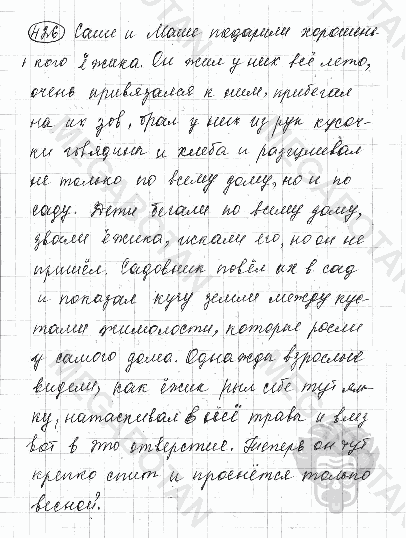 486 Саше и Маше подарили хорошень-
кого ёжика. Он жил у них всё лето,
очень привязался к ним, прибегал
на их зов, брал у них из рук кусоч-
ки говядины и хлеба и разгуливал
не только по всему дому, но и по
саду. Дети бегали по всему дому,
звали ёжика, искали его, но он не
пришёл. Садовник повёл их в сад
и показал кучу земли между кус-
тами жимолости, которые росли
у самого дома. Однажды взрослые
видели, как ёжик рыл себе тут ям-
ку, натаскивал в неё травы и влез
вот в это отверстие. Теперь он тут
крепко спит и проснётся только
весной.